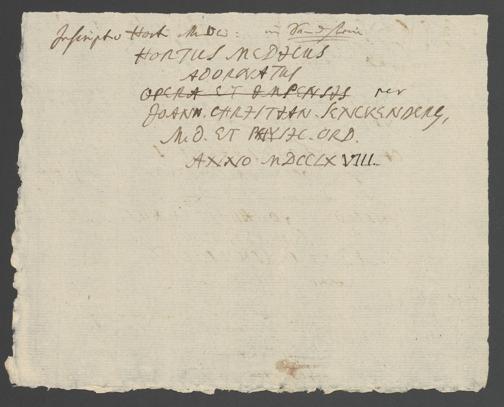 Inscriptio Hort. Medic: in Sandstein
HORTUS MEDICUS
ADORNATUS
OPERA ET IMPENSIS per
JOANN. CHRISTIAN. SENCKENBERG,
M.D. ET PHYSIC. ORD.
ANNO MDCCLXVIII.